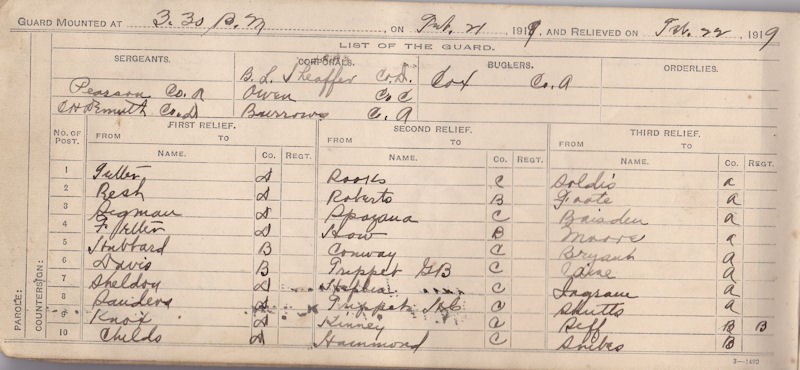 GUARD MOUNTED AT 3.30 P.M , ON Feb. 21 , 1919, AND RELIEVED ON Feb. 22 , 1919
LIST OF THE GUARD.
SERGEANTS. CORPORALS. BUGLERS. ORDERLIES.
B. L. Sheaffer Co. D. Cox Co. A
Pearson Co. A Owen Co C
Co. D Burrows C. A
No. OF POST. FIRST RELIEF. SECOND RELIEF. THIRD RELIEF.
FROM TO FROM TO FROM TO
NAME. Co. REGT. NAME. Co. REGT. NAME. Co. REGT.
1 D Rooks C A
2 Resh D Roberts B Foote A
3 Segman D C Baisden A
4 D How B Moore A
5 Hubbard B Conway C Bryant A
6 Davis B Trippet G B C A
7 Sheldon D C Ingram A
8 Sanders D Trippet C Shutts A
9 Knox D Kinney C Biff B B
10 Childs D Hammond C Snibes B
PAROLE:
COUNTERSIGN:
3—1492